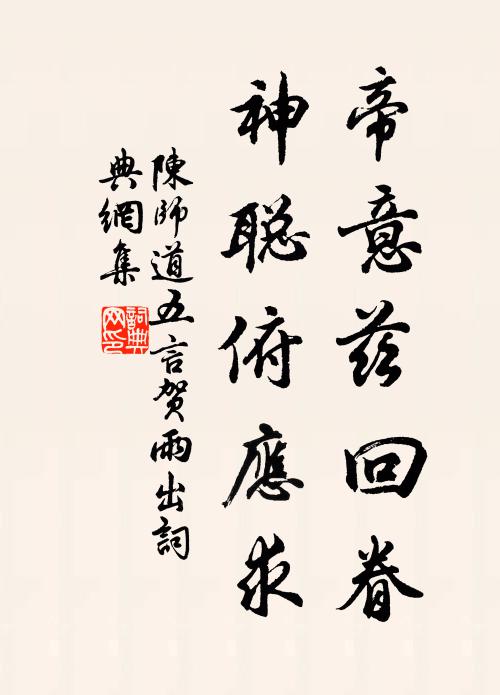 帝意茲回眷
神聪俯應求
陳師道五言贺雨出詞
典網集
詞典网印